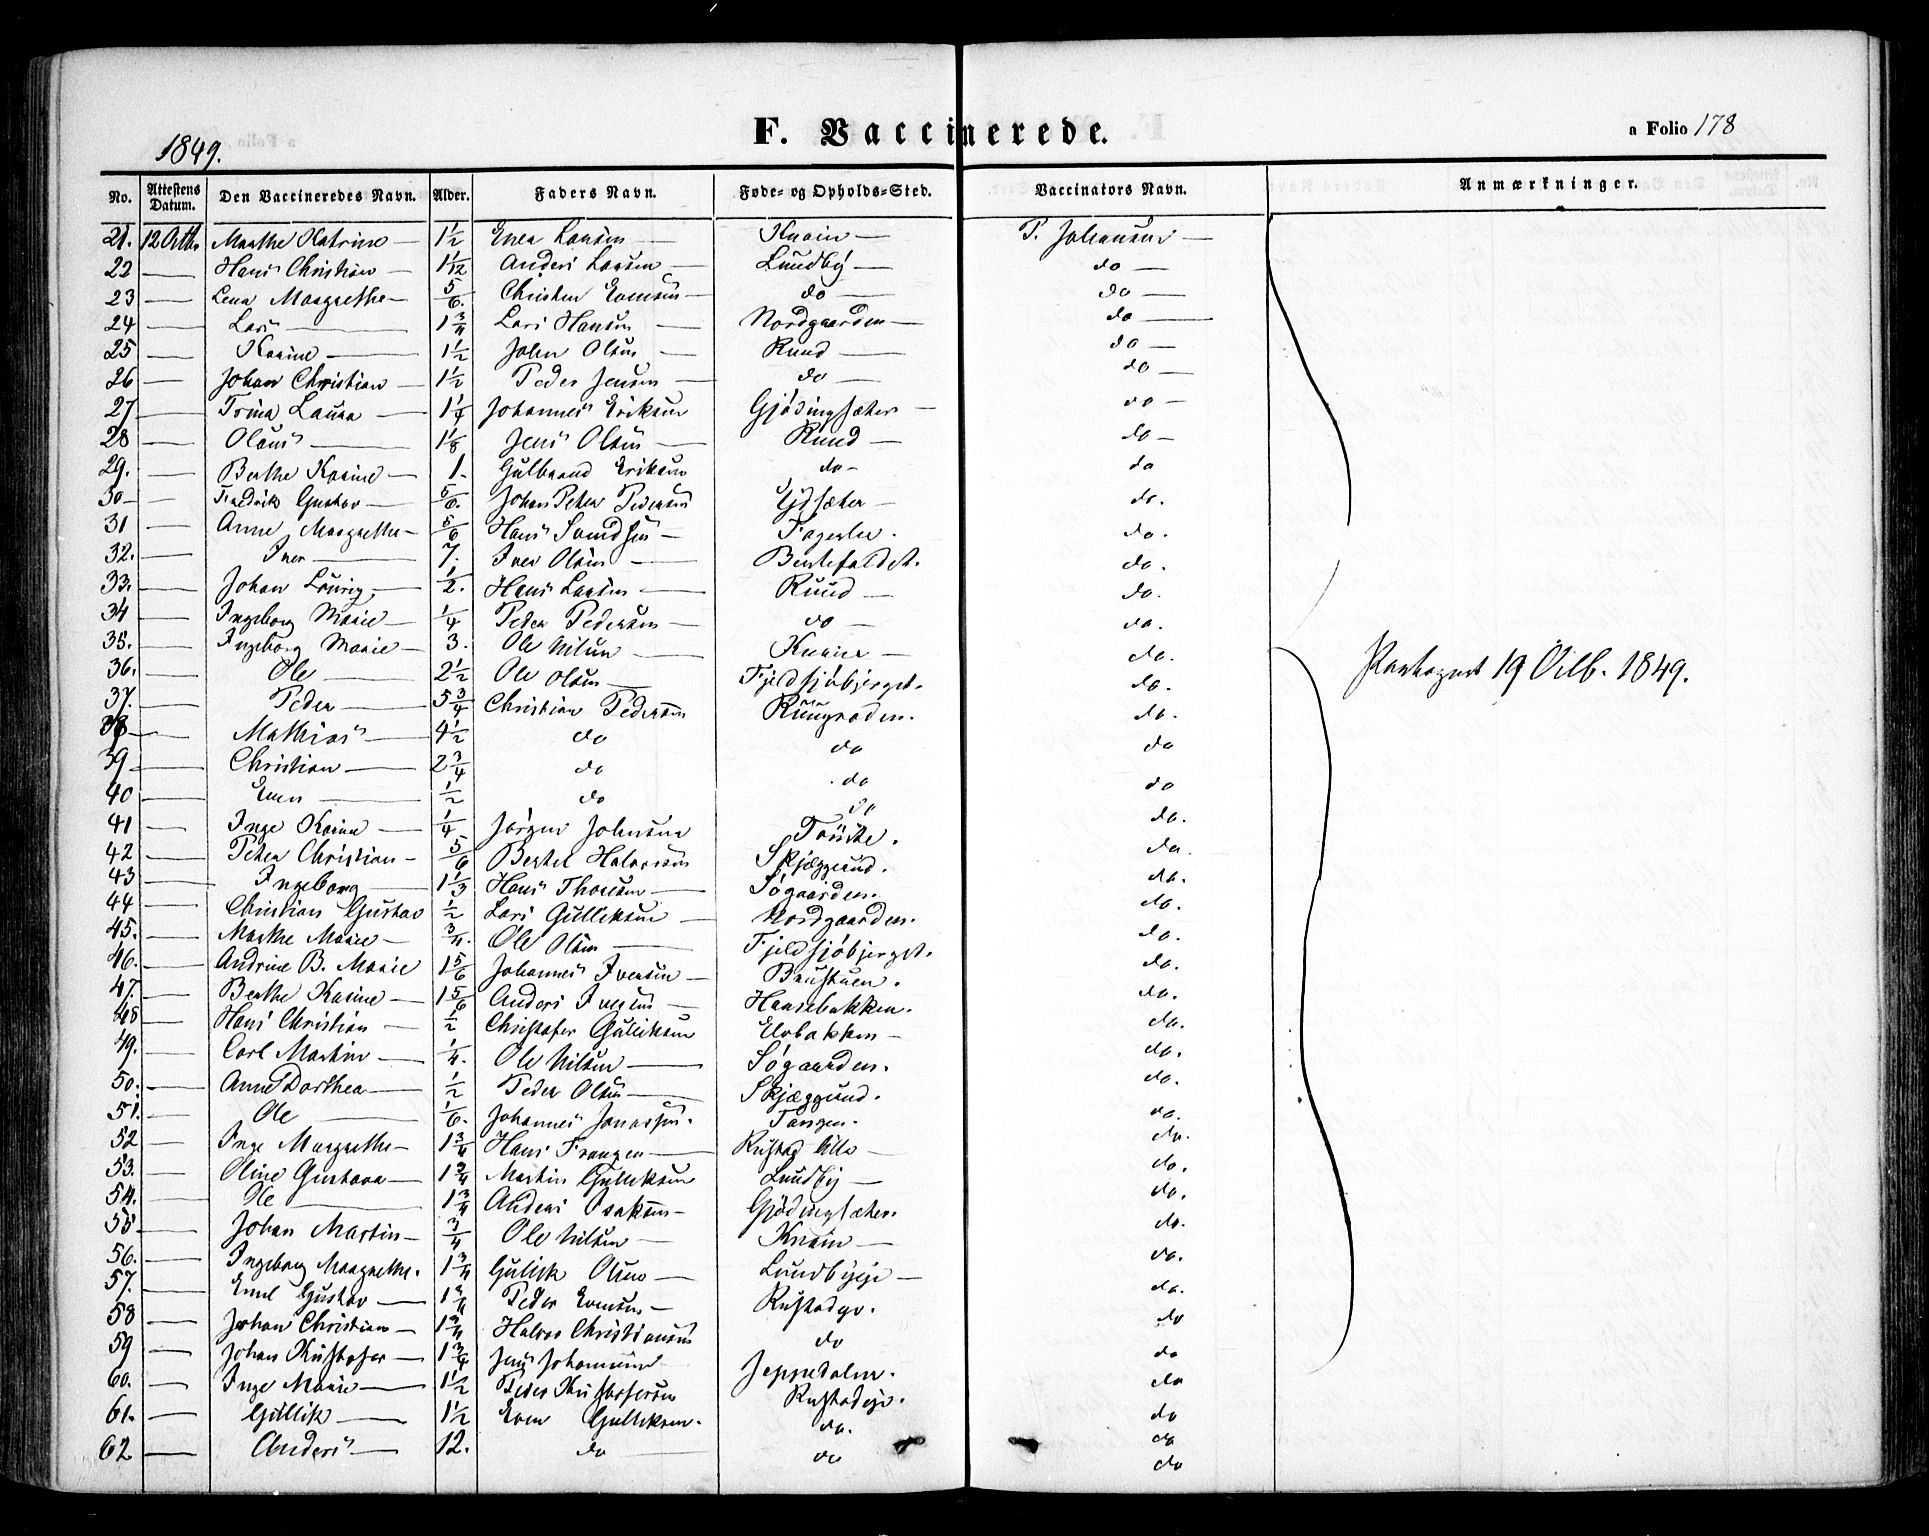 1849.
F. Vaccinerede.
a Folio 178
No. Attestens Datum. Den Vaccineredes Navn. Alder. Faders Navn. Føde- og Opholds-Sted. Vaccinators Navn. Anmærkninger.
21. 12 Octb. Marthe Katrine — 1 1/2 Larsen — — P. Johansen —
22 — Hans Christian — 1 1/12 Anders Larsen — Lundby — do —
23 — Lena Margrethe — 5/6. Christen Evensen — do — do —
24 — Lars — 1 3/4 Lars Hansen — Nordgaarden — do —
25 — Karine — 1 1/2 John Olsen — Ruud — do —
26 — Johan Christian — 1 1/2 Peder Jensen — do — do —
27 — Trina Laura — 1 1/4 Johannes Eriksen Gjödingsæter — do —
28 — Olaus — 1 1/8 Jens Olsen — Ruud — do —
29. — Berthe Karine — 1. Gulbrand Eriksen do — do
30 — — Fredrik Gustav — 5/6. Johan Peter Pedersen Ejdsæter — do.
31 — Anne Margrethe — 5/6 Hans Svendsen — Fagerlie. do.
32. — Iver — 7. Iver Olsen — Bertefaldet. do.
33. — Johan — 1/2. Hans Larsen — Ruud — do.
34 — Ingeborg Marie — 1/4 Peder Pedersen — do — do.
35. — Ingeborg Marie — 3. Ole Nilsen — — do.
36. — Ole — 2 1/2 Ole Olsen — Fjeldsjöbjerget. do.
37. — Peder — 5 3/4 Christian Pedersen do.
38 — Mathias — 4 1/2 do do do
39 — Christian — 2 3/4 do do do
40 — Even — 1/2 do do do.
41 — Inge Karine — 1/4 Jörgen Johnsen do.
42 — Peter Christian — 5/6 Bertel Halvorsen Skjæggerud. do.
43 — Ingeborg — 1 1/3 Hans Thorsen — Søgaarden. do.
44 — Christian Gustav 1/2 Lars Gulliksen — Nordgaarden. do.
45. — Marthe Marie — 3/4. Ole Olsen — Fjeldsjöbjerget. do.
46. — Andrine B. Marie 1 5/6 Johannes Iversen — Braustuen. do.
47. — Berthe Karine — 1 5/6 Anders Iversen — Haarebakken. do.
48 — Hans Christian — 1/2 Christofer Gulliksen Elvbakken — do.
49. — Carl Martin — 1/4. Ole Nilsen — Søgaarden. do.
50. — Anne Dorthea — 1/2 Peder Olsen — Skjæggerud. do.
51. — Ole — 1/6. Johannes Jonassen. Tangen. do.
52 — Inge Margrethe — 1 3/4 Hans Frantzen — Rustad — do.
53. — Oline Gustava — 1 3/4 Martin Gulliksen Lundby — do.
54. — Ole — 1 3/4 Anders Isaksen — Gjödingsæter. do.
55 — Johan Martin — 3/4 Ole Nilsen — — do.
56. — Ingeborg Margrethe. 1 3/4 Gulick Olsen — Lundbyeje — do.
57. — Emil Gustav — 1 3/4 Peder Evensen — do
58 — Johan Christian — 1 3/4 Halvor Christiansen do do
59 — Johan Kristofer — 1 3/4 Jens Johannesen Jeppedalen. do
60. — Inge Marie — 1 1/2 Peder Kristofersen Rustadeje. do
61. — Gullik — 1 1/2 Even Gulliksen. do. do
62 — Anders — 12. do do do
19 1849.